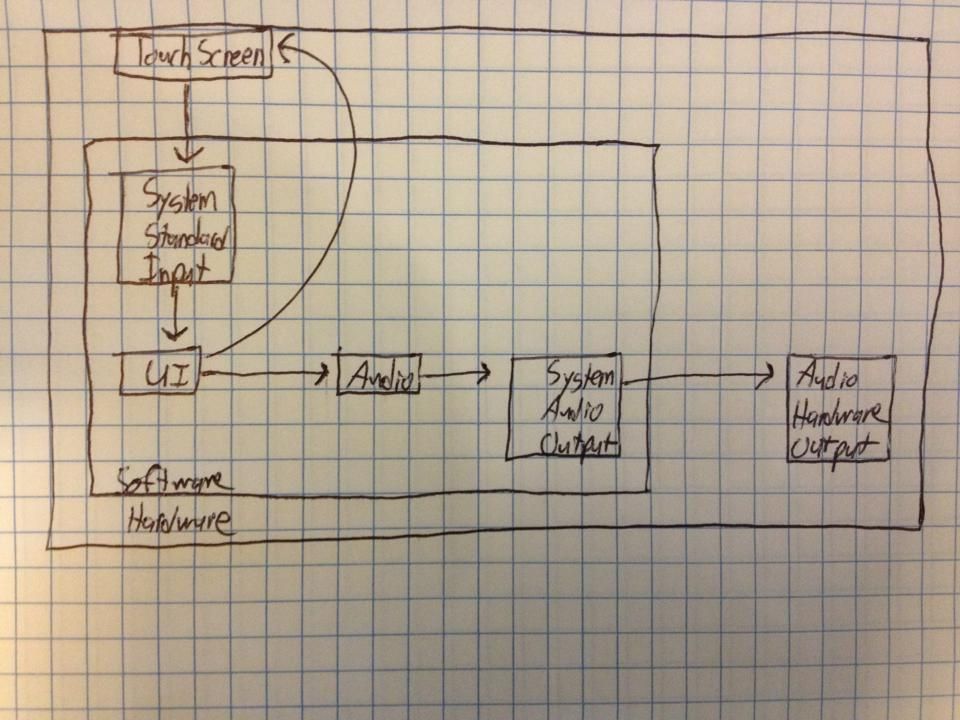 Touch Screen
System
Standard
Input
UI
Audio
System
Audio
Output
Audio
Hardware
Output
Software
Hardware